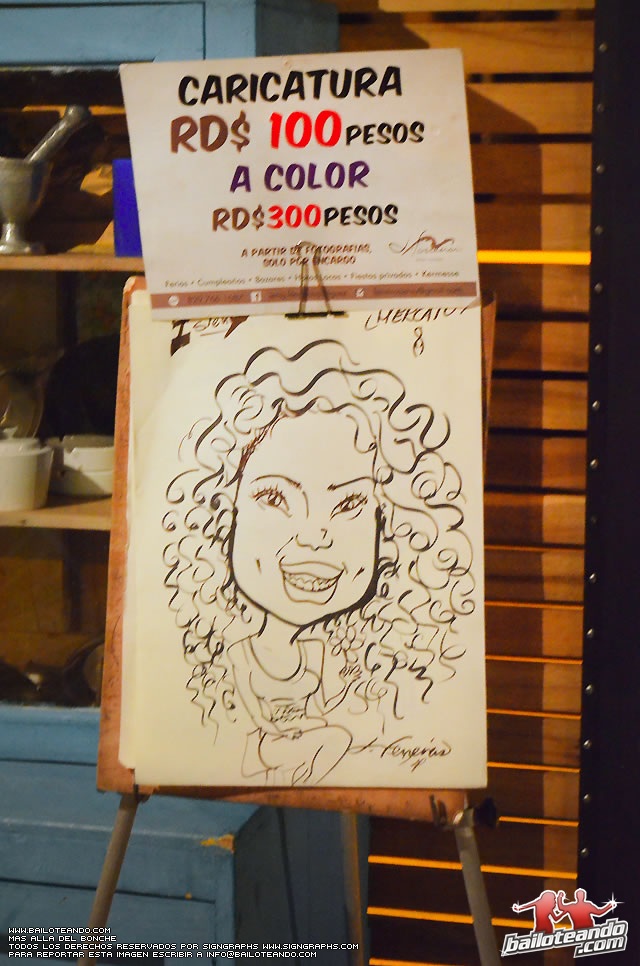 CARICATURA
RD$ 100 PESOS
A COLOR
RD$300PESOS
A PARTIR DE FOTOGRAFIAS,
SOLO POR ENCARGO
Ferias • Cumpleaños • Bazares • Fiestas privadas • Kermesse
WWW.BAILOTEANDO.COM
MAS ALLA DEL BONCHE
TODOS LOS DERECHOS RESERVADOS POR SIGNGRAPHS WWW.SIGNGRAPHS.COM
PARA REPORTAR ESTA IMAGEN ESCRIBIR A INFO@BAILOTEANDO.COM
bailoteando
.com